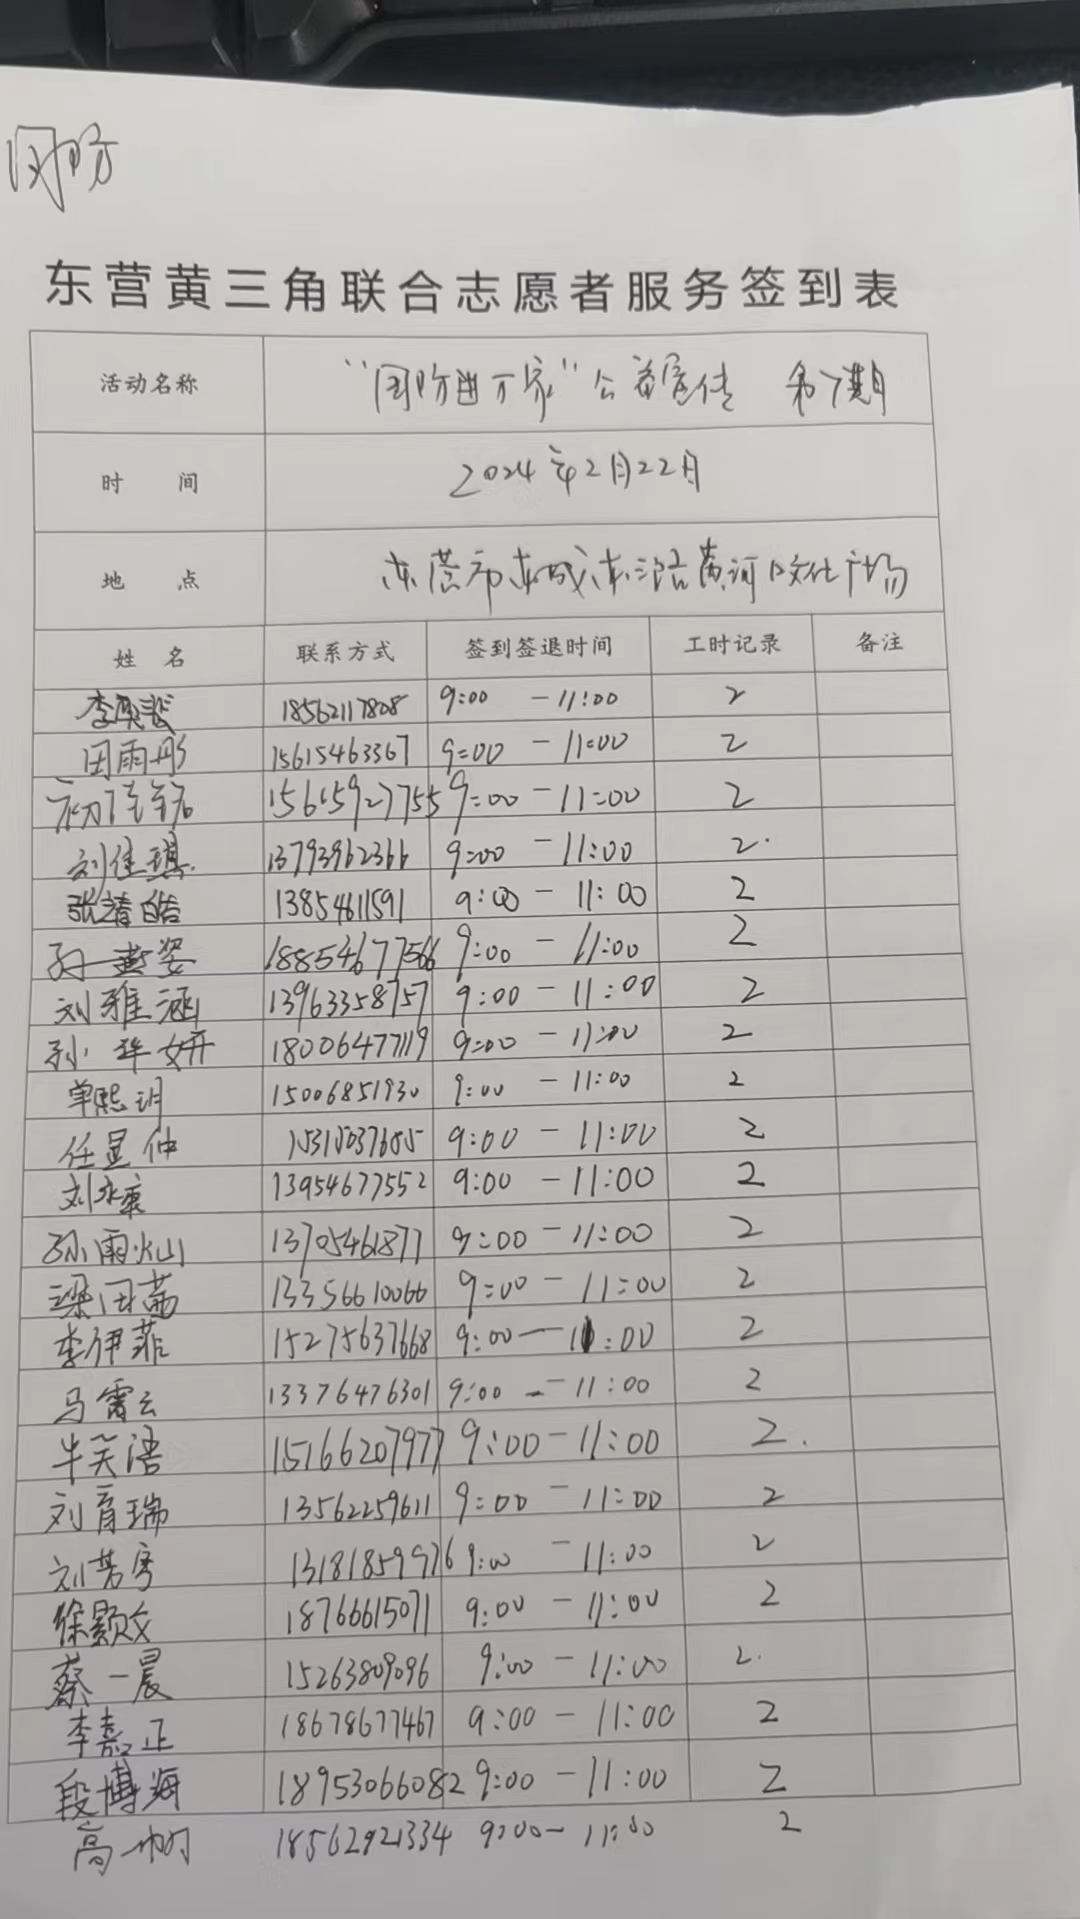 国防
东营黄三角联合志愿者服务签到表
活动名称 “国防进万家”公益宣传 第7期
时 间 2024年2月22日
地 点 东营市东城东三路黄河口文化广场
姓 名 联系方式 签到签退时间 工时记录 备注
18562117808 9:00 - 11:00 2
田雨彤 15615463367 9:00 - 11:00 2
15615927755 9:00 - 11:00 2
刘佳琪 13793962366 9:00 - 11:00 2
张清皓 13854611591 9:00 - 11:00 2
孙燕姿 18854677566 9:00 - 11:00 2
刘雅涵 13963358757 9:00 - 11:00 2
孙华妍 18006477119 9:00 - 11:00 2
单熙玥 15006851930 9:00 - 11:00 2
任显仲 15315037685 9:00 - 11:00 2
刘永康 13954677552 9:00 - 11:00 2
孙雨灿 13705461877 9:00 - 11:00 2
梁田茜 13356610066 9:00 - 11:00 2
李伊菲 15275637668 9:00 - 11:00 2
马霄云 13376476301 9:00 - 11:00 2
牛笑语 15166207977 9:00 - 11:00 2
刘育瑞 13562259611 9:00 - 11:00 2
13181859976 9:00 - 11:00 2
徐颢文 18766615071 9:00 - 11:00 2
蔡一晨 15263809096 9:00 - 11:00 2
李嘉正 18678677467 9:00 - 11:00 2
段博海 18953066082 9:00 - 11:00 2
高一帆 18562921334 9:00 - 11:00 2